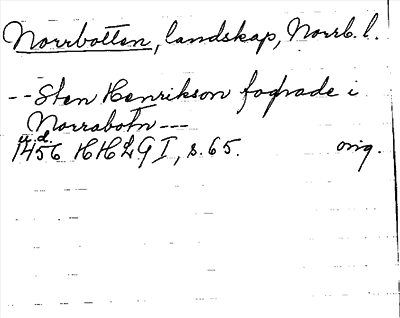 Norrbotten, landskap, Norrb. l.
-- Sten Henrikson fograde i
Norrabotn ---
u.d.
1456 HHLG I, s. 65. orig.